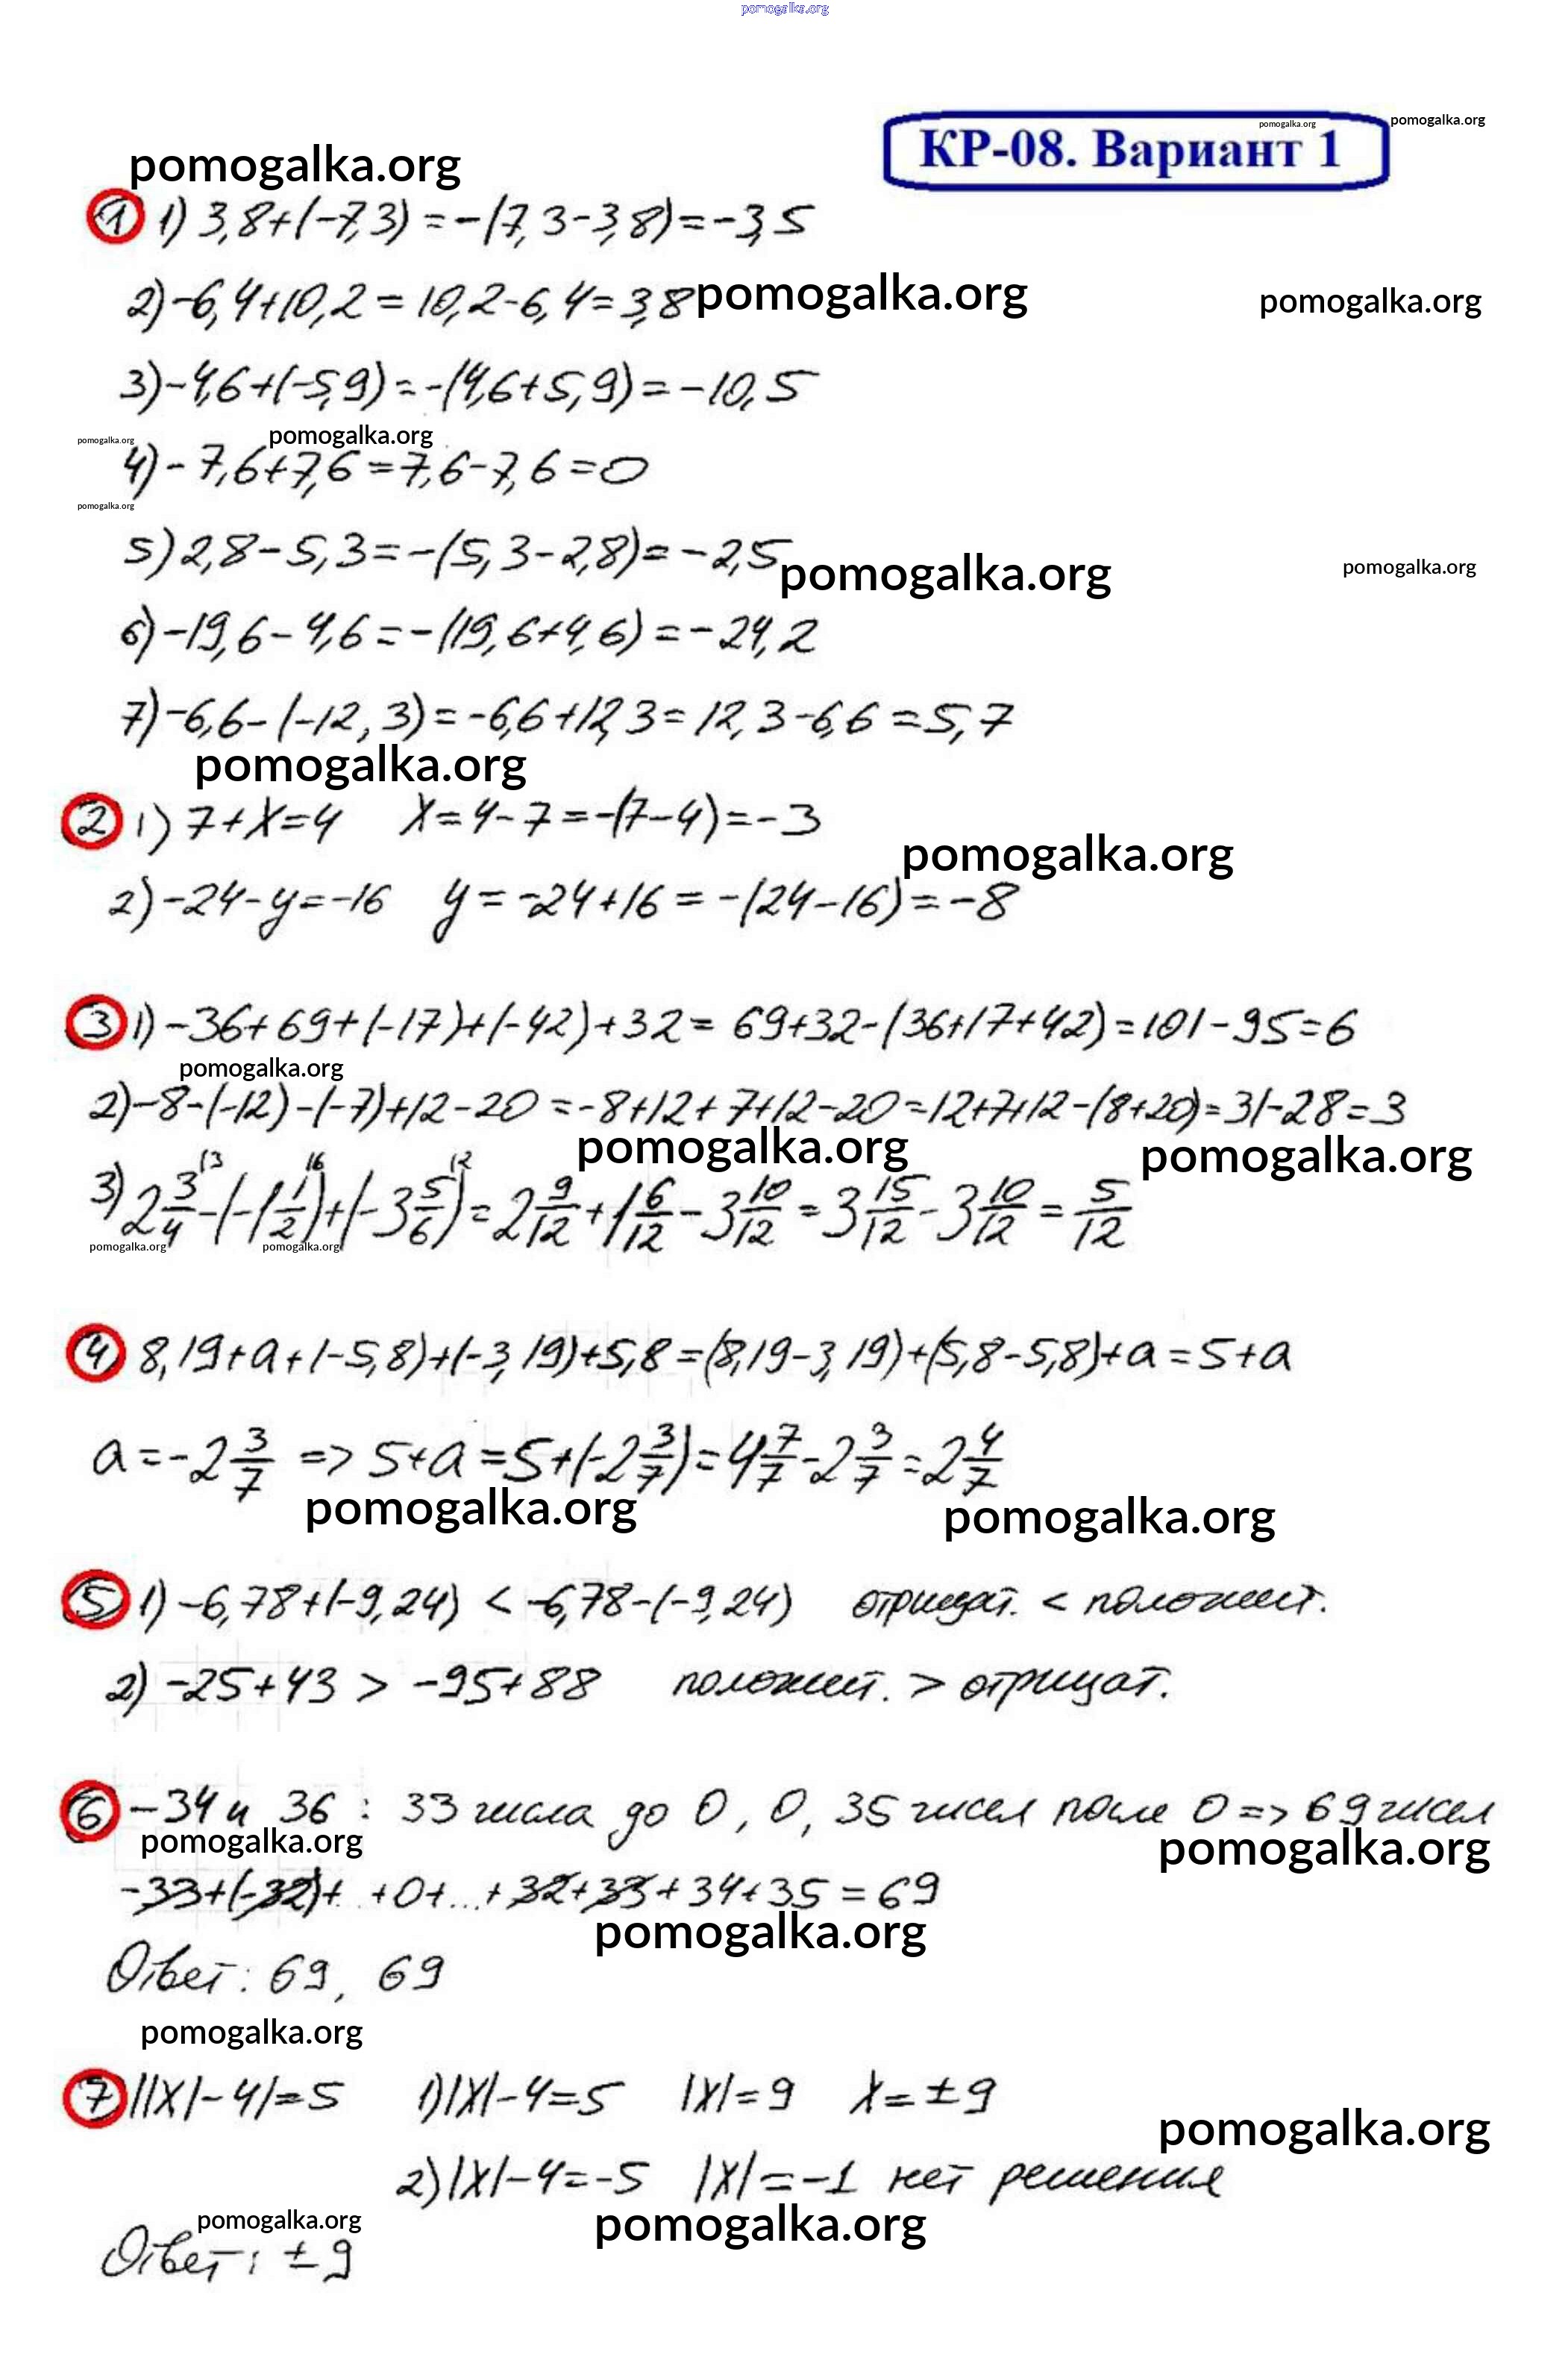 pomogalka.org
КР-08. Вариант 1
pomogalka.org
pomogalka.org
pomogalka.org
1 1) 3,8+(-7,3)=-(7,3-3,8)=-3,5
2) -6,4+10,2=10,2-6,4=3,8
pomogalka.org
pomogalka.org
3) -4,6+(-5,9)=-(4,6+5,9)=-10,5
pomogalka.org
pomogalka.org
4) -7,6+7,6=7,6-7,6=0
pomogalka.org
5) 2,8-5,3=-(5,3-2,8)=-2,5
pomogalka.org
pomogalka.org
6) -19,6-4,6=-(19,6+4,6)=-24,2
7) -6,6-(-12,3)=-6,6+12,3=12,3-6,6=5,7
pomogalka.org
2 1) 7+x=4 x=4-7=-(7-4)=-3
pomogalka.org
2) -24-y=-16 y=-24+16=-(24-16)=-8
3 1) -36+69+(-17)+(-42)+32=69+32-(36+17+42)=101-95=6
pomogalka.org
2) -8-(-12)-(-7)+12-20=-8+12+7+12-20=12+7+12-(8+20)=31-28=3
pomogalka.org
pomogalka.org
3) 2 3/4 \3 -(-1 1/2 \6)+(-3 5/6 \2)=2 9/12+1 6/12-3 10/12=3 15/12-3 10/12=5/12
pomogalka.org
pomogalka.org
4 8,19+a+(-5,8)+(-3,19)+5,8=(8,19-3,19)+(5,8-5,8)+a=5+a
a=-2 3/7 => 5+a=5+(-2 3/7)=4 7/7-2 3/7=2 4/7
pomogalka.org
pomogalka.org
5 1) -6,78+(-9,24) < -6,78-(-9,24) отрицат. < положит.
2) -25+43 > -95+88 положит. > отрицат.
6 -34 и 36 : 33 числа до 0, 0, 35 чисел после 0 => 69 чисел
pomogalka.org
pomogalka.org
-33+(-32)+.. +0+...+32+33+34+35=69
pomogalka.org
Ответ: 69, 69
pomogalka.org
7 ||x|-4|=5 1) |x|-4=5 |x|=9 x=±9
pomogalka.org
2) |x|-4=-5 |x|=-1 нет решения
pomogalka.org
pomogalka.org
Ответ: ±9